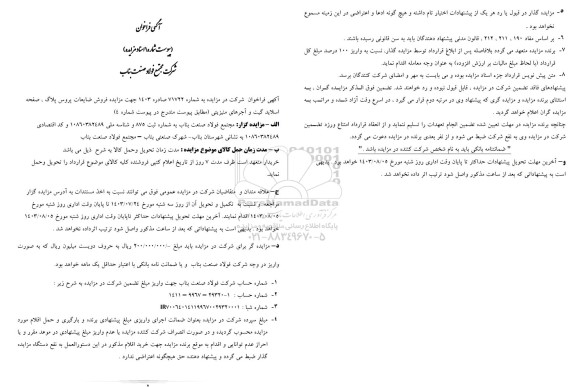 آگهی فراخوان
(پیوست شماره ۱ اسناد مزایده)
شرکت مجتمع فولاد صنعت بناب
آگهی فراخوان شرکت در مزایده به شماره ۷۱۷۲۴ صادره ۱۴۰۳ جهت مزایده فروش ضایعات بروس بلاگ ، صفحه
اسلاید گیت و آجرهای منیزیتی (مطابق پیوست مندرج در پیوست شماره ۴)
الف – مزایده گزار: مجتمع فولاد صنعت بناب به شماره ثبت ۸۷۵ و شناسه ملی ۱۰۸۶۰۳۸۲۴۸۹ و کد اقتصادی
۱۰۸۶۰۳۸۲۴۸۹ به نشانی شهرستان بناب- شهرک صنعتی بناب – مجتمع فولاد صنعت بناب
ب – مدت زمان حمل کالای موضوع مزایده : مدت زمان تحویل وحمل کالا به شرح ذیل می باشد
خریدار متعهد است ظرف مدت ۷ روز از تاریخ اعلام کتبی فروشنده کلیه کالای موضوع قرارداد را تحویل وحمل
نماید.
ج – علاقه مندان و متقاضیان شرکت در مزایده عمومی فوق می توانند نسبت به اخذ مستندات به آدرس مزایده گزار
مراجعه و نسبت به تکمیل و تحویل آن از روز سه شنبه مورخ ۱۴۰۳/۰۷/۲۴ تا پایان وقت اداری روز شنبه مورخ
۱۴۰۳/۰۸/۰۵ اقدام نمایند. آخرین مهلت تحویل پیشنهادات حداکثر تاپایان وقت اداری روز شنبه مورخ ۱۴۰۳/۰۸/۰۵
خواهد بود . بدیهی است به پیشنهاداتی که بعد از ساعت مذکور واصل شود ترتیب اثرداده نخواهد شد .
د – مزایده گر برای شرکت در مزایده باید مبلغ ۲۰۰/۰۰۰/۰۰۰/- ریال به حروف دویست میلیون ریال که به صورت
واریز در وجه شرکت فولاد صنعت بناب و یا ضمانت نامه بانکی با اعتبار حداقل یک ماهه خواهد بود.
۱- شماره حساب شرکت فولاد صنعت بناب جهت واریز مبلغ تضمین شرکت در مزایده به شرح زیر :
۲- شماره حساب : ۱-۴۹۳۲۰ – ۹۹۶۷ – ۱۴۱۱
۳- شماره شبا :
۴- مبلغ سپرده شرکت در مزایده بعنوان ضمانت اجرای واریزی مبلغ پیشنهادی برنده و بارگیری و حمل اقلام مورد
مزایده محسوب گردیده و در صورت انصراف شرکت کننده مزایده یا عدم واریز مبلغ پیشنهادی در موعد مقرر و یا
احراز عدم توانایی و اقدام به موقع برنده مزایده جهت خرید اقلام مذکور در این دستورالعمل به نفع دستگاه مزایده
گذار ضبط می گردد و پیشنهاد دهنده حق هیچگونه اعتراضی ندارد .
۵- مزایده گذار در قبول یا رد هر یک از پیشنهادات اختیار تام داشته و هیچ گونه ادعا و اعتراضی در این زمینه مسموع
نخواهد بود .
۶- بر اساس مفاد ۱۹۰ ، ۲۱۱ ، ۲۱۲ ، قانون مدنی پیشنهاد دهندگان باید به سن قانونی رسیده باشند .
۷- برنده مزایده متعهد می گردد بلافاصله پس از ابلاغ قرارداد توسط مزایده گذار، نسبت به واریز ۱۰۰ درصد مبلغ کل
قرارداد (با لحاظ مبلغ مالیات بر ارزش افزوده) به عنوان وجه معامله اقدام نماید.
۸- متن پیش نویس قرارداد جزء اسناد مزایده بوده و می بایست به مهر و امضای شرکت کنندگان برسد.
پیشنهادهای فاقد تضمین شرکت در مزایده ، قابل قبول نبوده و رد خواهند شد. تضمین فوق المذکر مزایمده گمران ، بمه
استثنای برنده مزایده و مزایده گری که پیشنهاد وی در مرتبه دوم قرار می گیرد ، در اسرع وقت آزاد شمده و مراتمب بمه
مزایده گران اعلام خواهد گردید.
چنانچه برنده مزایده، در مهلت تعیین شده تضمین انجام تعهدات را تسلیم ننماید و از انعقاد قرارداد امتناع ورزد تضممین
شرکت در مزایده وی به نفع شرکت ضبط می شود و از نفر بعدی برنده در مزایده دعوت می گردد.
" ضمانتنامه بانکی باید به نام شخص شرکت کننده در مزایده باشد . "
و – آخرین مهلت تحویل پیشنهادات حداکثر تا پایان وقت اداری روز شنبه مورخ ۱۴۰۳/۰۸/۰۵ خواهد بود. بدیهی
است به پیشنهاداتی که بعد از ساعت مذکور واصل شود ترتیب اثر داده نخواهد شد .
ParsNamadData
۰۲۱-۸۸۳۴۹۶۷۰-۵